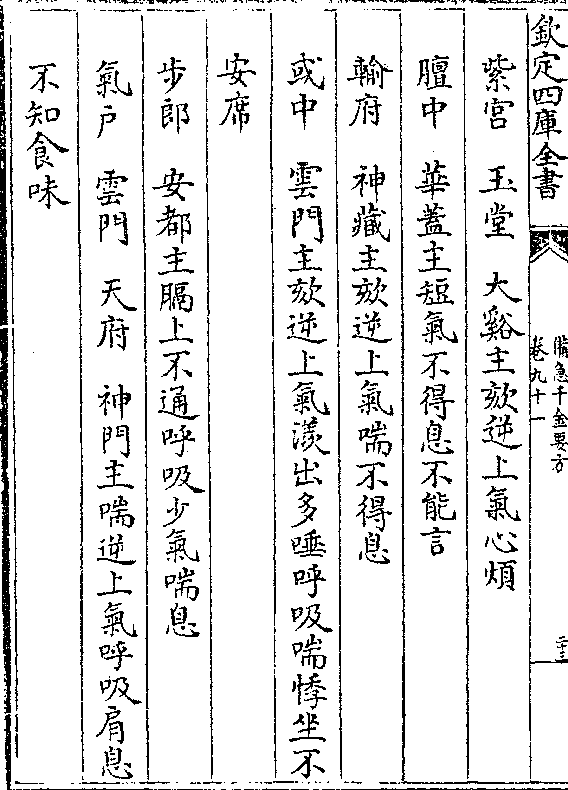 欽定四庫全書
備急千金要方
卷九十一
二十三
紫宮　玉堂　大谿主欬逆上氣心煩
膻中　華蓋主短氣不得息不能言
輸府　神藏主欬逆上氣喘不得息
或中　雲門主欬逆上氣漾出多唾呼吸喘悸坐不
安席
步郎　安都主膈上不通呼吸少氣喘息
氣户　雲門　天府　神門主喘逆上氣呼吸肩息
不知食味